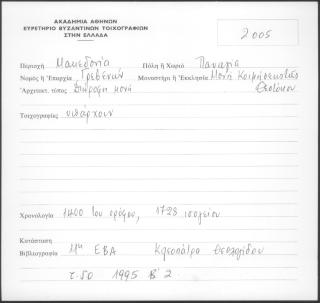 ΑΚΑΔΗΜΙΑ ΑΘΗΝΩΝ
ΕΥΡΕΤΗΡΙΟ ΒΥΖΑΝΤΙΝΩΝ ΤΟΙΧΟΓΡΑΦΙΩΝ
ΣΤΗΝ ΕΛΛΑΔΑ
2005
Περιοχή Μακεδονία Πόλη ή Χωριό Παναγιά
Νομός ἤ Ἐπαρχία Γρεβενών Μοναστήρι ἤ Ἐκκλησία Μονή Κοιμήσεως της
Ἀρχιτεκτ. τύπος Θεοτόκου
Τοιχογραφίες υπάρχουν
Χρονολογία 1400 του 1728
Κατάσταση
Βιβλιογραφία 11η ΕΒΑ Κλεοπάτρα Θεολογίδου
τ. 50 1995 Β' 2